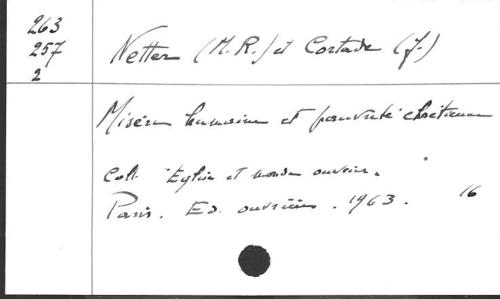 263
257
2
Netter (M. R.) et Cortade (J.)
Misère humaine et pauvreté chrétienne
Coll. "Eglise et monde ouvrier."
Paris. Ed. ouvrières. 1963. 16